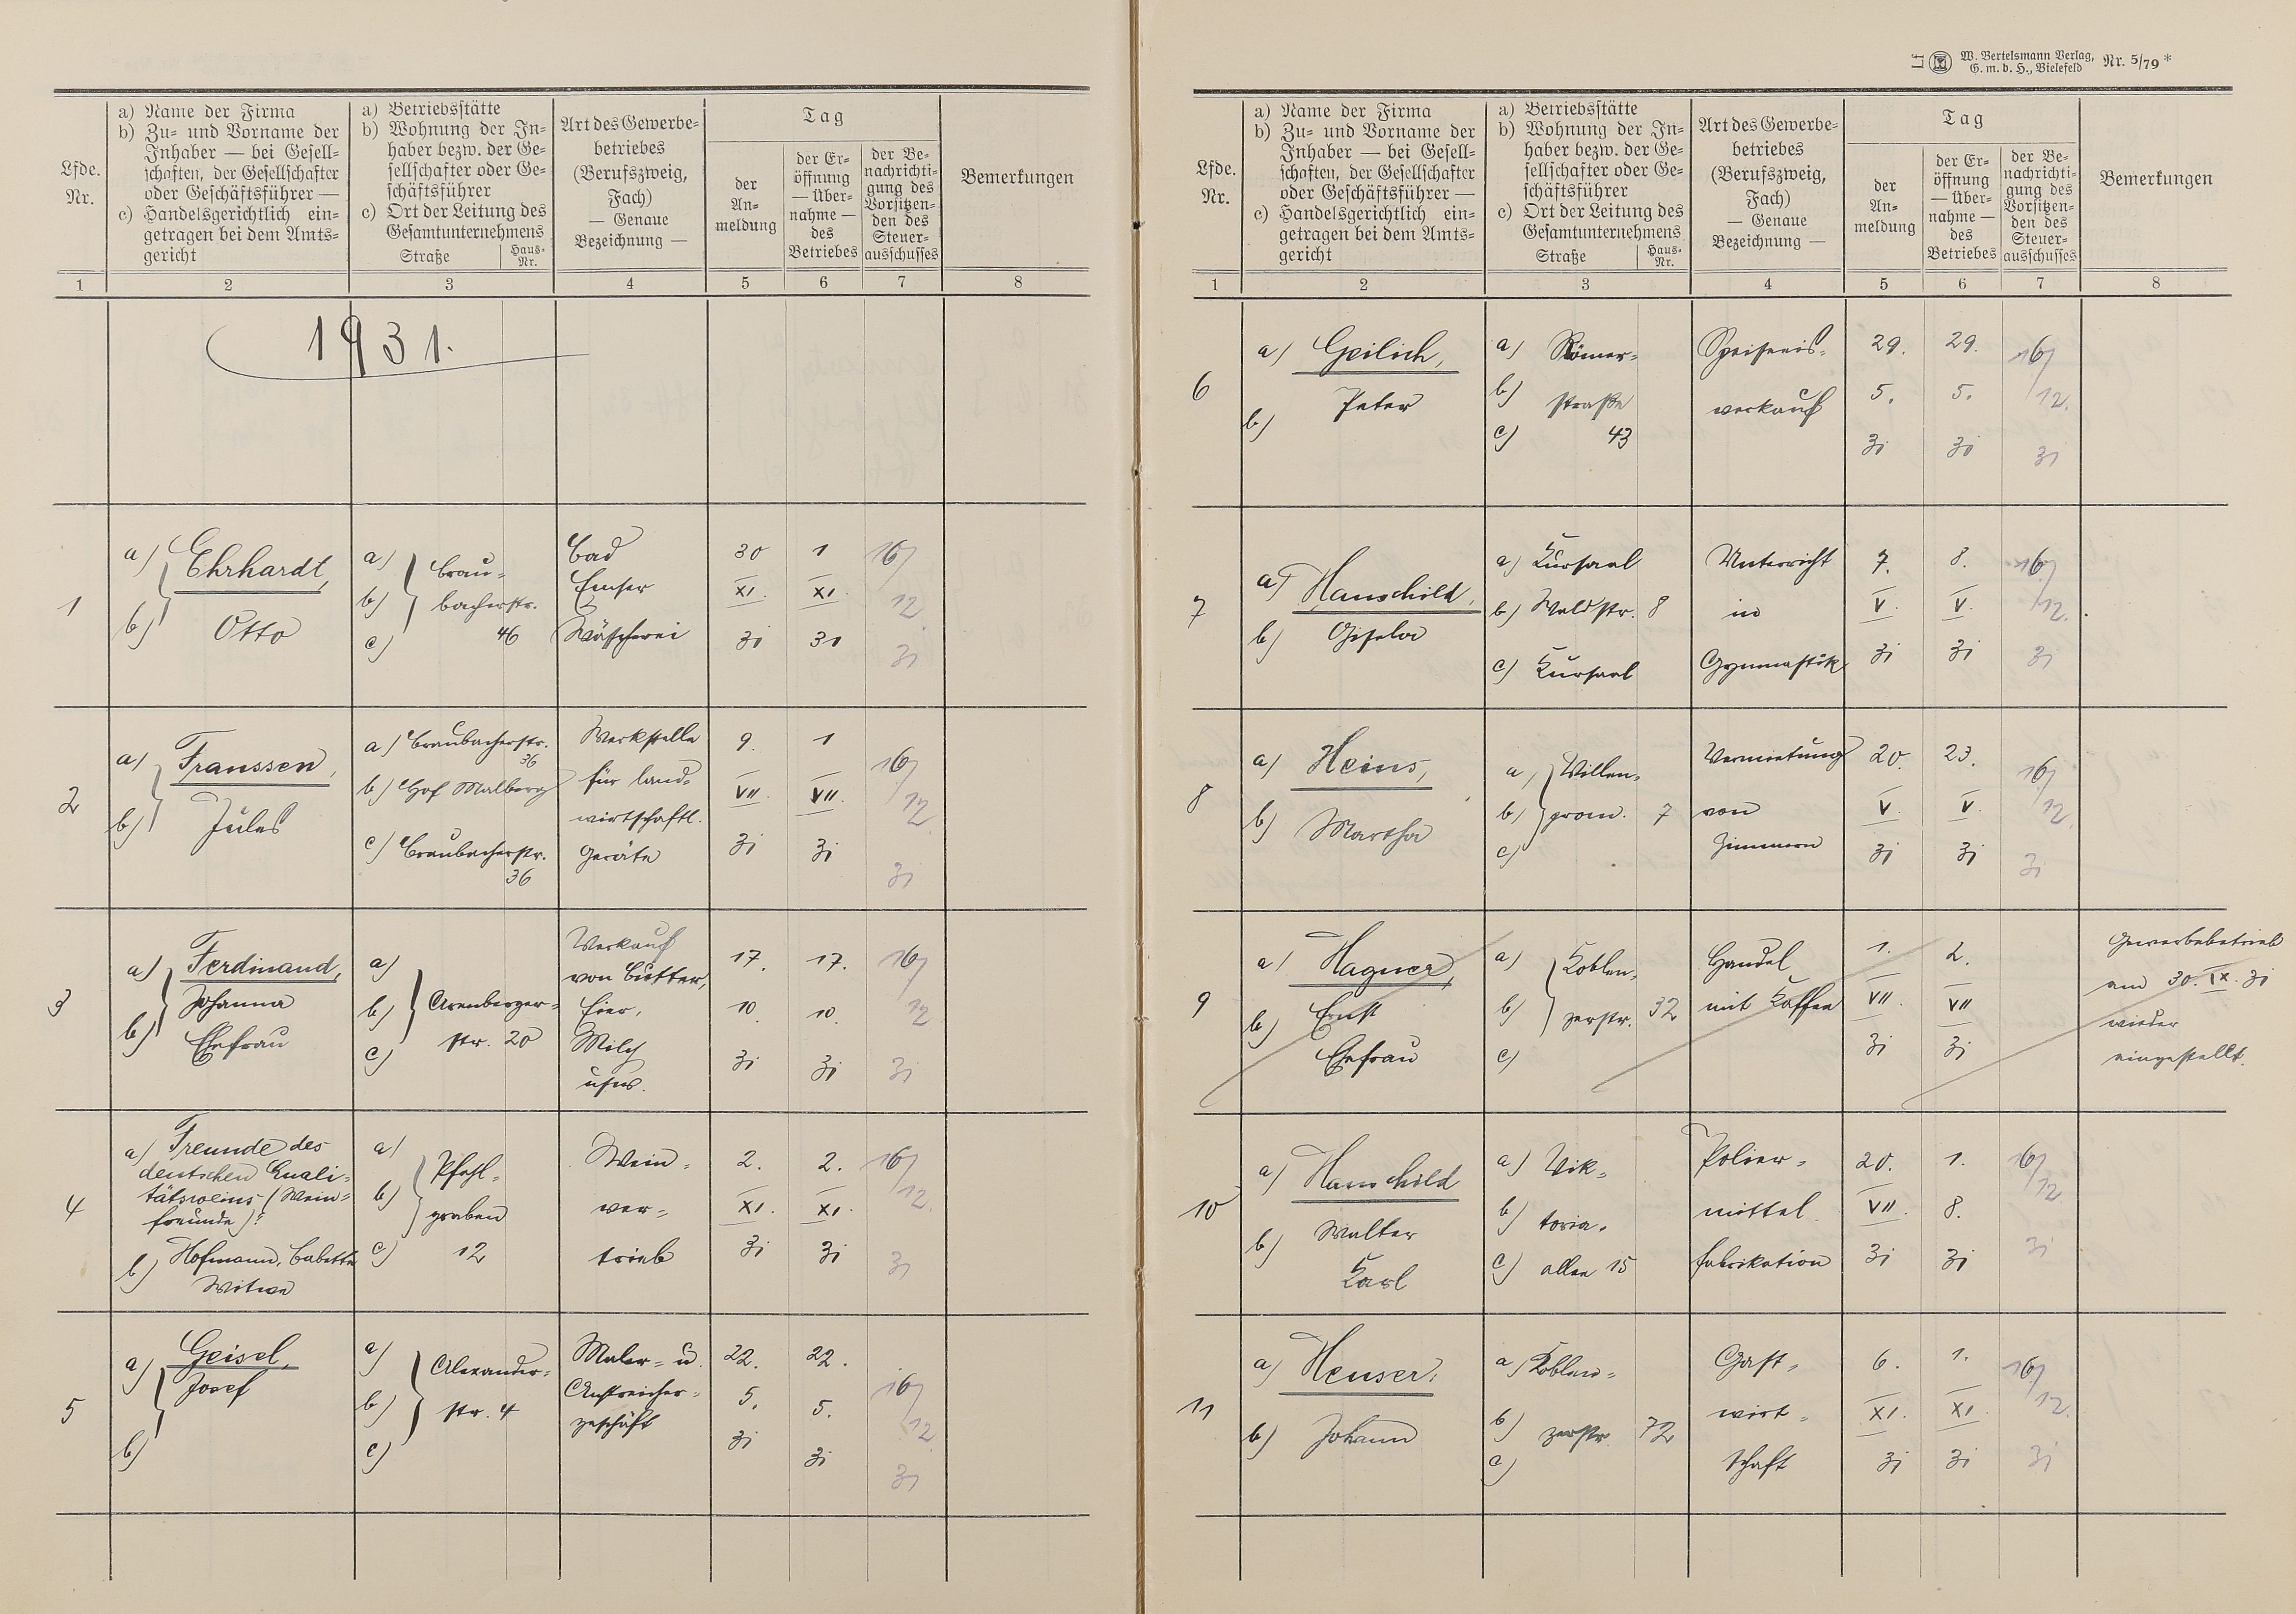 a) Name der Firma
b) Zu- und Vorname der
Inhaber — bei Gesell-
schaften, der Gesellschafter
oder Geschäftsführer —
c) Handelsgerichtlich ein-
getragen bei dem Amts-
gericht
a) Betriebsstätte
b) Wohnung der In-
haber bezw. der Ge-
sellschafter oder Ge-
schäftsführer
c) Ort der Leitung des
Gesamtunternehmens
Straße
Haus-
Nr.
Art des Gewerbe-
betriebes
(Berufszweig,
Fach)
— Genaue
Bezeichnung —
Tag
der
An-
meldung
der Er-
öffnung
— Über-
nahme —
des
Betriebes
der Be-
nachrichti-
gung des
Vorsitzen-
den des
Steuer-
ausschusses
Bemerkungen
Lfde.
Nr.
1 2 3 4 5 6 7 8
1931.
1
a) Ehrhardt,
b) Otto
a) Brau-
b) bacherstr.
c) 46
Bad
Emser
Wäscherei
30 XI. 31
1 XI. 31
16/12. 31
2
a) Franssen,
b) Jules
a) Braubacherstr.
36
b) Hof Malberg
c) Braubacherstr.
36
Werkstelle
für land-
wirtschaftl.
Geräte
9. VII. 31
1 VII. 31
16/12. 31
3
a) Ferdinand,
Johanna
b) Ehefrau
a)
b) Arenberger-
c) str. 20
Verkauf
von Butter,
Eier,
Milch
usw.
17. 10. 31
17. 10. 31
16/12 31
4
a) Freunde des
deutschen Quali-
tätsweins (Wein-
freunde):
b) Hofmann, Babette
Witwe
a) Pfahl-
b) graben
c) 12
Wein-
ver-
trieb
2. XI. 31
2. XI. 31
16/12. 31
5
a) Geisel,
Josef
b)
a) Alexander-
b) str. 4
c)
Maler- u.
Anstreicher-
geschäft
22. 5. 31
22. 5. 31
16/12 31
W. Bertelsmann Verlag,
G. m. b. H., Bielefeld
Nr. 5/79*
Lfde.
Nr.
a) Name der Firma
b) Zu- und Vorname der
Inhaber — bei Gesell-
schaften, der Gesellschafter
oder Geschäftsführer —
c) Handelsgerichtlich ein-
getragen bei dem Amts-
gericht
a) Betriebsstätte
b) Wohnung der In-
haber bezw. der Ge-
sellschafter oder Ge-
schäftsführer
c) Ort der Leitung des
Gesamtunternehmens
Straße
Haus-
Nr.
Art des Gewerbe-
betriebes
(Berufszweig,
Fach)
— Genaue
Bezeichnung —
Tag
der
An-
meldung
der Er-
öffnung
— Über-
nahme —
des
Betriebes
der Be-
nachrichti-
gung des
Vorsitzen-
den des
Steuer-
ausschusses
Bemerkungen
1 2 3 4 5 6 7 8
6
a) Geilich,
b) Peter
a) Römer-
b) straße
c) 43
Speiseeis-
verkauf
29. 5. 31
29. 5. 31
16/12. 31
7
a) Hanschild,
b) Gisela
a) Kursaal
b) Waldstr. 8
c) Kursaal
Unterricht
in
Gymnastik
7. V. 31
8. V. 31
16/12. 31
8
a) Heins,
b) Martha
a) Villen-
b) prom. 7
c)
Vermietung
von
Zimmern
20. V. 31
23. V. 31
16/12. 31
9
a) Hagner,
b) Ernst
Ehefrau
a) Koblen-
b) zerstr. 32
c)
Handel
mit Kaffee
1. VII. 31
2. VII 31
Gewerbebetrieb
am 30. IX. 31
wieder
eingestellt.
10
a) Hanschild
b) Walter
Karl
a) Vik-
b) toria-
c) allee 15
Polier-
mittel
fabrikation
20. VII. 31
1. 8. 31
16/12 31
11
a) Heuser.
b) Johann
a) Koblen-
b) zerstr. 72
c)
Gast-
wirt-
schaft
6. XI. 31
1. XI. 31
16/12. 31